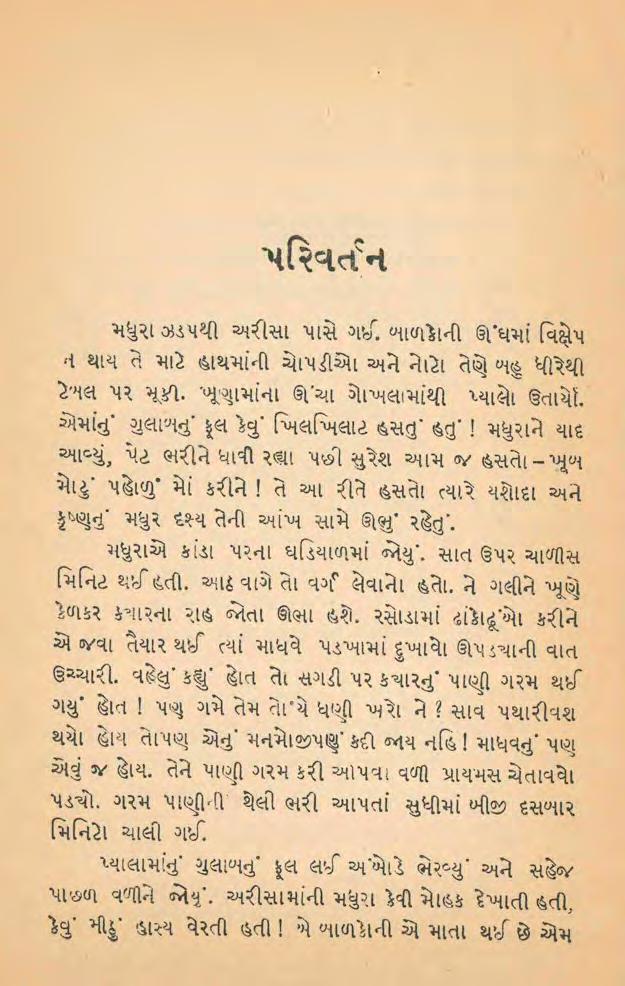 પરિવર્તન
મધુરા ઝડપથી અરીસા પાસે ગઈ. બાળકોની ઊંઘમાં વિક્ષેપ
ન થાય તે માટે હાથમાંની ચોપડીઓ અને નોટો તેણે બહુ ધીરેથી
ટેબલ પર મૂકી. ખૂણામાંના ઊંચા ગોખલામાંથી પ્યાલો ઉતાર્યો.
એમાંનું ગુલાબનું ફૂલ કેવું ખિલખિલાટ હસતું હતું ! મધુરાને યાદ
આવ્યું, પેટ ભરીને ધાવી રહ્યા પછી સુરેશ આમ જ હસતો – ખૂબ
મોટું પહોળું મોં કરીને ! તે આ રીતે હસતો ત્યારે યશોદા અને
કૃષ્ણનું મધુર દૃશ્ય તેની આંખ સામે ઊભું રહેતું.
મધુરાએ કાંડા પરના ઘડિયાળમાં જોયું. સાત ઉપર ચાળીસ
મિનિટ થઈ હતી. આઠ વાગે તો વર્ગ લેવાનો હતો. ને ગલીને ખૂણે
કેળકર ક્યારના રાહ જોતા ઊભા હશે. રસોડામાં ઢાંકોઢૂંબો કરીને
એ જવા તૈયાર થઈ ત્યાં માધવે પડખામાં દુખાવો ઊપડ્યાની વાત
ઉચ્ચારી. વહેલું કહ્યું હોત તો સગડી પર ક્યારનું પાણી ગરમ થઈ
ગયું હોત ! પણ ગમે તેમ તોયે ધણી ખરો ને ? સાવ પથારીવશ
થયો હોય તોપણ એનું મનમોજીપણું કદી જાય નહિ ! માધવનું પણ
એવું જ હોય. તેને પાણી ગરમ કરી આપવા વળી પ્રાયમસ ચેતાવવો
પડ્યો. ગરમ પાણીની થેલી ભરી આપતાં સુધીમાં બીજી દસબાર
મિનિટો ચાલી ગઈ.
પ્યાલામાંનું ગુલાબનું ફૂલ લઈ અંબોડે ભેરવ્યું અને સહેજ
પાછળ વળીને જોયું. અરીસામાંની મધુરા કેવી મોહક દેખાતી હતી,
કેવું મીઠું હાસ્ય વેરતી હતી ! બે બાળકોની એ માતા થઈ છે એમ